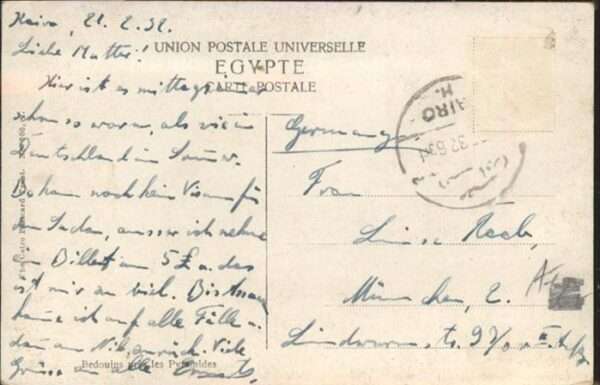 Kairo, 21. 2. 32.
Liebe Mutter!
UNION POSTALE UNIVERSELLE
EGYPTE
CARTE POSTALE
Hier ist es mittags immer
schon so warm, als wie in
Deutschland im Sommer.
Bekam noch kein Visum für
den Sudan, ausser ich nehme
ein Billett um 5 £ u. das
ist mir zu viel. Bis Assuan
komme ich auf alle Fälle u.
dann zurück. Viele
Grüsse an alle
Bedouins les Pyramides
CAIRO
H.
Germany
Frau
Luise
München, 2.
Lindwurmstr.